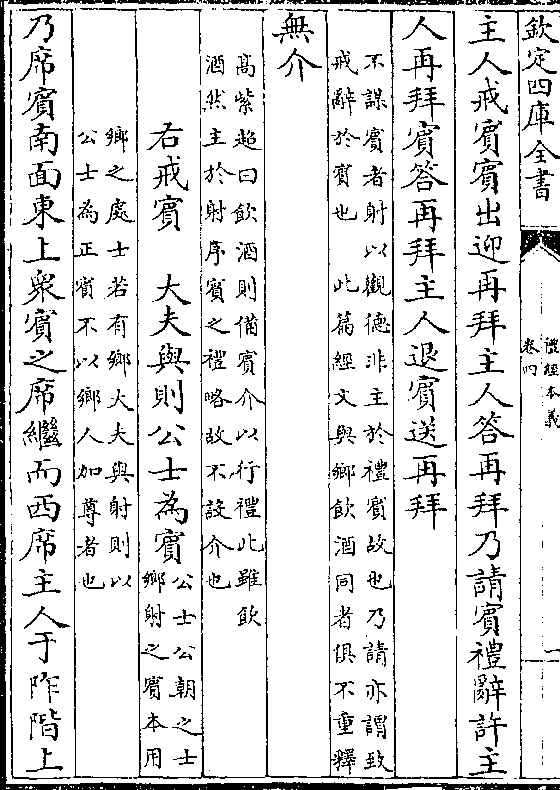 欽定四庫全書
禮經本義
卷四
主人戒賓賓出迎再拜主人答再拜乃請賓禮辭許主
人再拜賓答再拜主人退賓送再拜
不謀賓者射以觀德非主於禮賓故也乃請亦謂致
戒辭於賓也　此篇經文與鄉飲酒同者俱不重釋
無介
髙紫超曰飲酒則備賓介以行禮此雖飲
酒然主於射序賓之禮略故不設介也
右戒賓　大夫與則公士為賓
公士公朝之士
鄉射之賓本用
鄉之處士若有鄉大夫與射則以
公士為正賓不以鄉人加尊者也
乃席賓南面東上衆賓之席繼而西席主人于阼階上